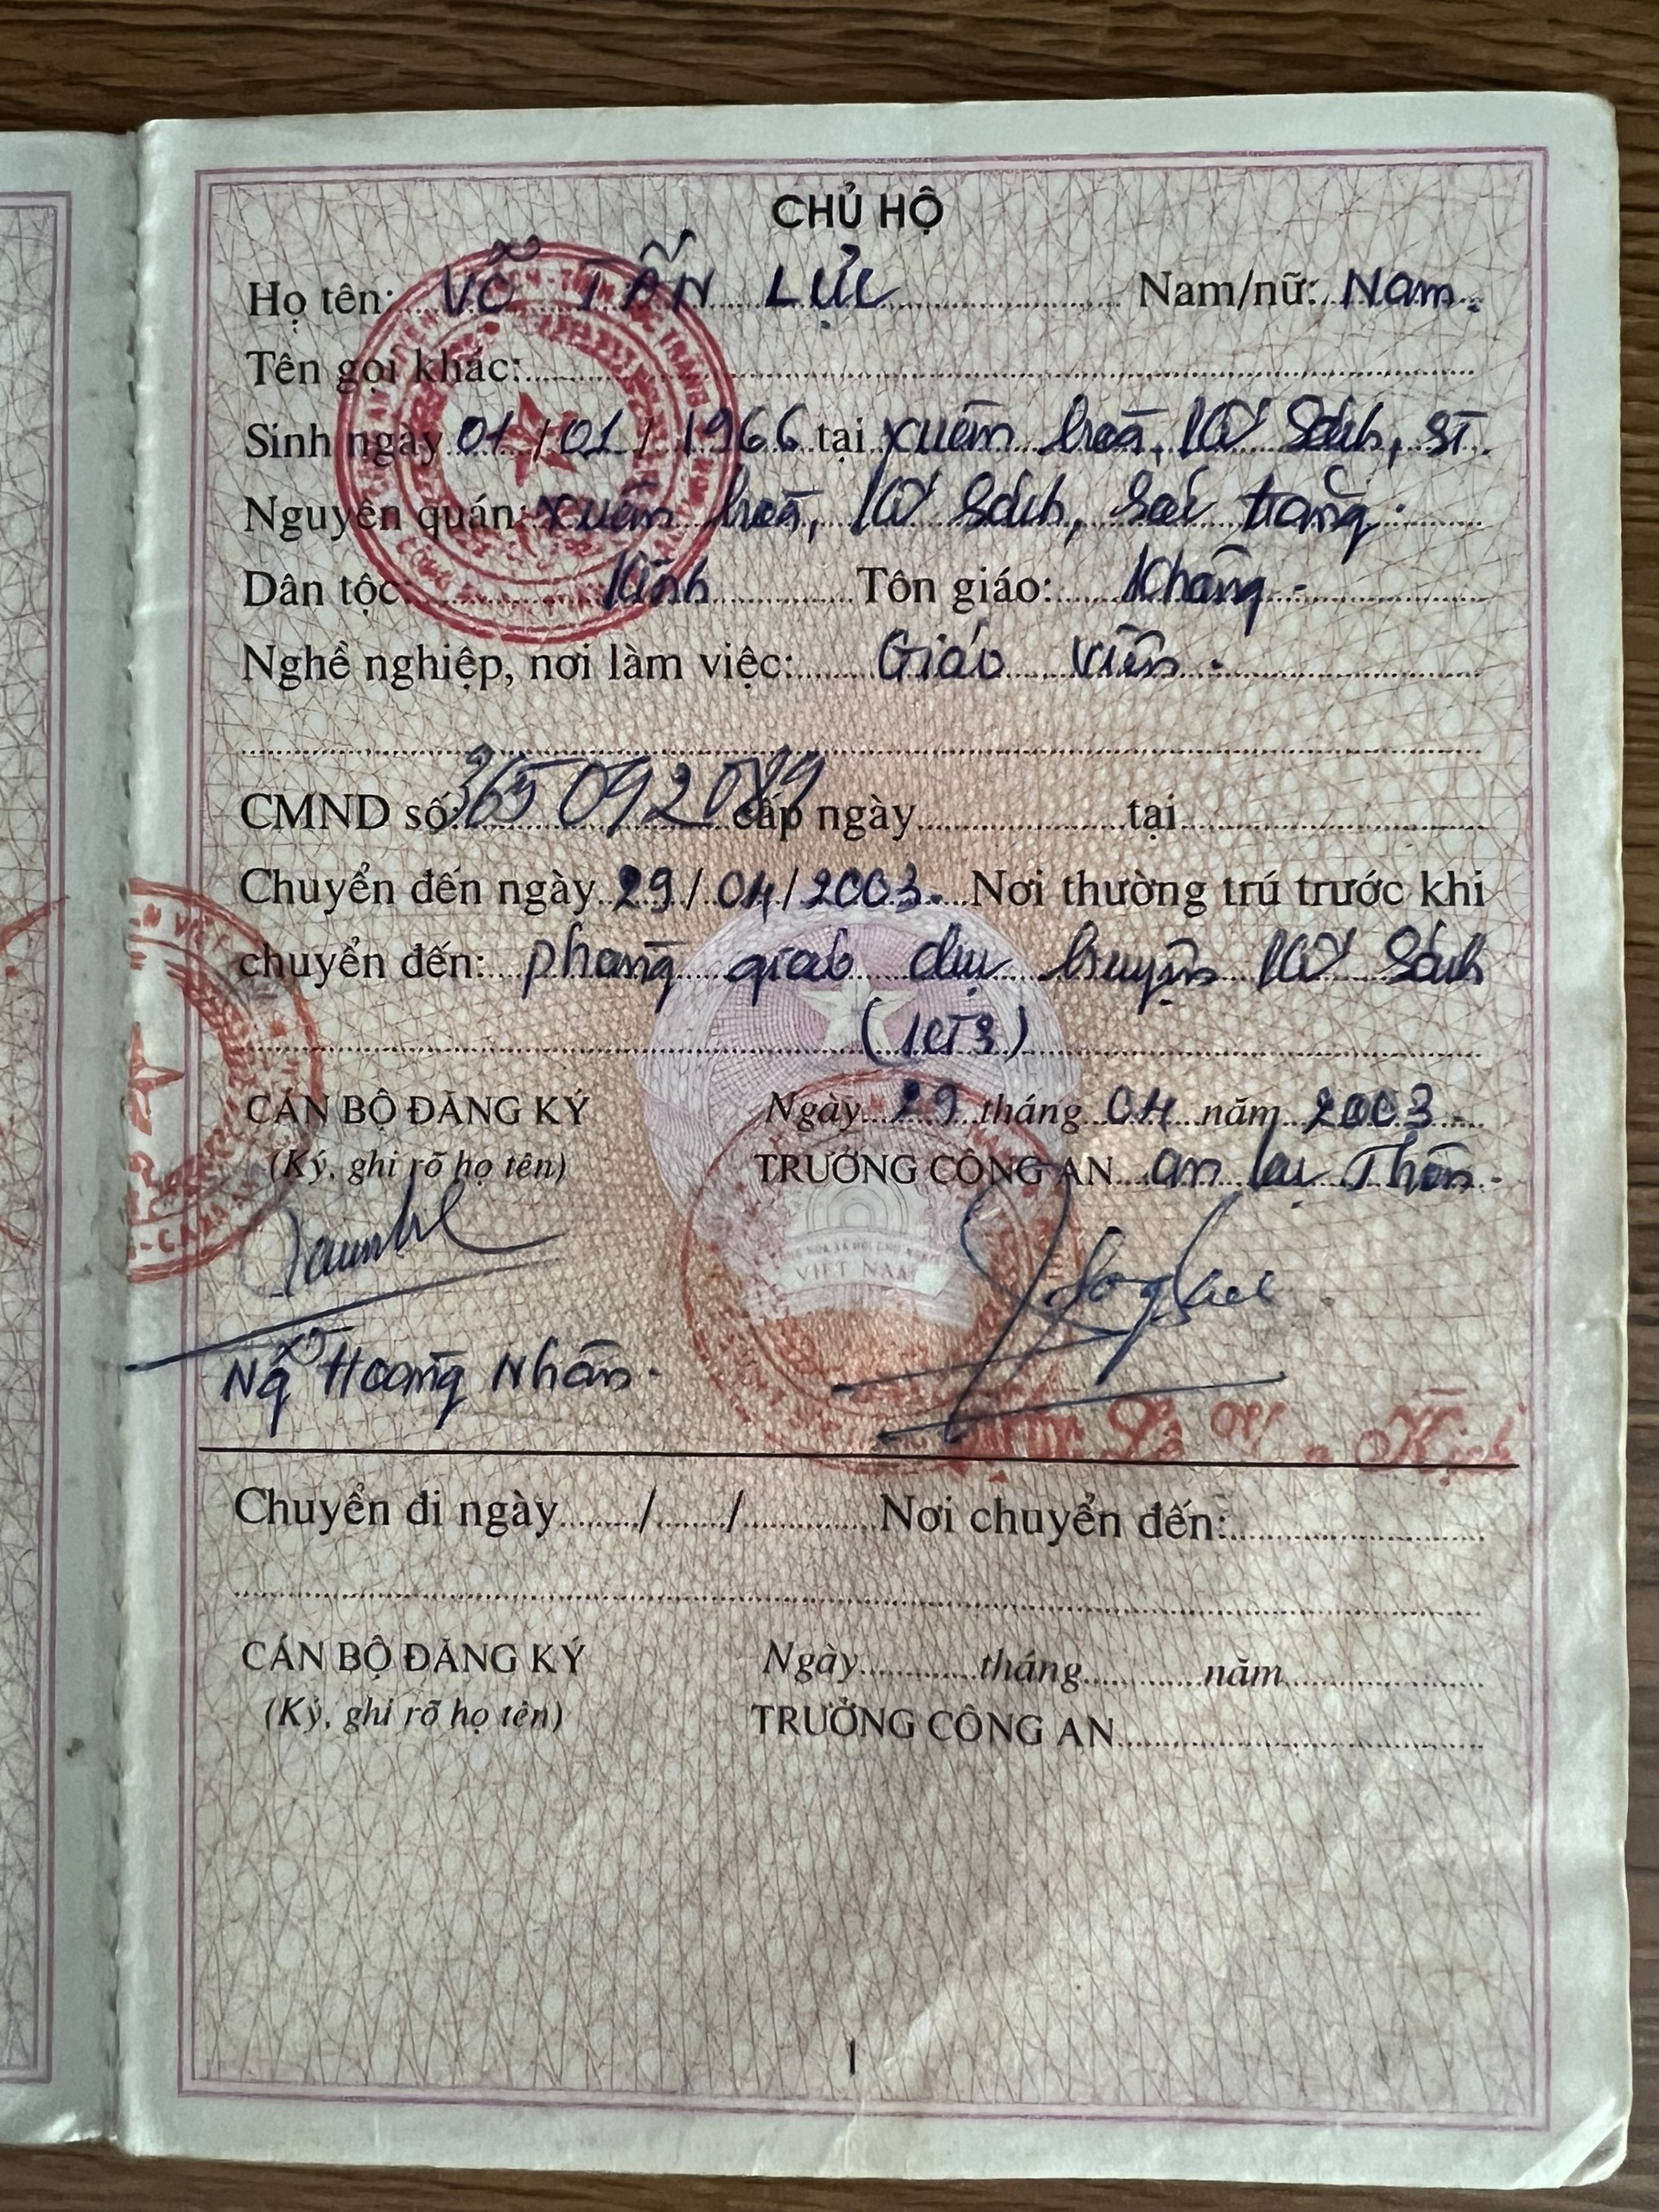 CHỦ HỘ
Họ tên: VÕ TẤN LỰC Nam/nữ: Nam.
Tên gọi khác:
Sinh ngày 01/01/1966 tại Xuân hoà, Kế Sách, ST.
Nguyên quán: Xuân hoà, Kế Sách, Sóc trăng.
Dân tộc: Kinh Tôn giáo: Không.
Nghề nghiệp, nơi làm việc: Giáo viên.
CMND số: 365092089 cấp ngày tại
Chuyển đến ngày 29/04/2003. Nơi thường trú trước khi
chuyển đến: phòng giáo dục huyện Kế Sách
CÁN BỘ ĐĂNG KÝ Ngày 29 tháng 04 năm 2003.
(Ký, ghi rõ họ tên) TRƯỞNG CÔNG AN an lạc Thôn.
VIỆT NAM
Hoàng Nhân.
Chuyển đi ngày / / Nơi chuyển đến:
CÁN BỘ ĐĂNG KÝ Ngày tháng năm
(Ký, ghi rõ họ tên) TRƯỞNG CÔNG AN
1